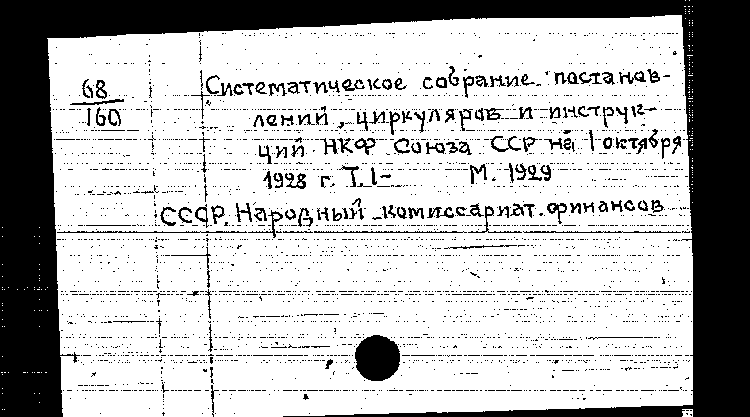 68
160
Систематическое собрание постанов-
лений, циркуляров и инструк-
ций НКФ Союза ССР на 1 октября
1928 г. Т. I- М. 1929
СССР. Народный комиссариат финансов